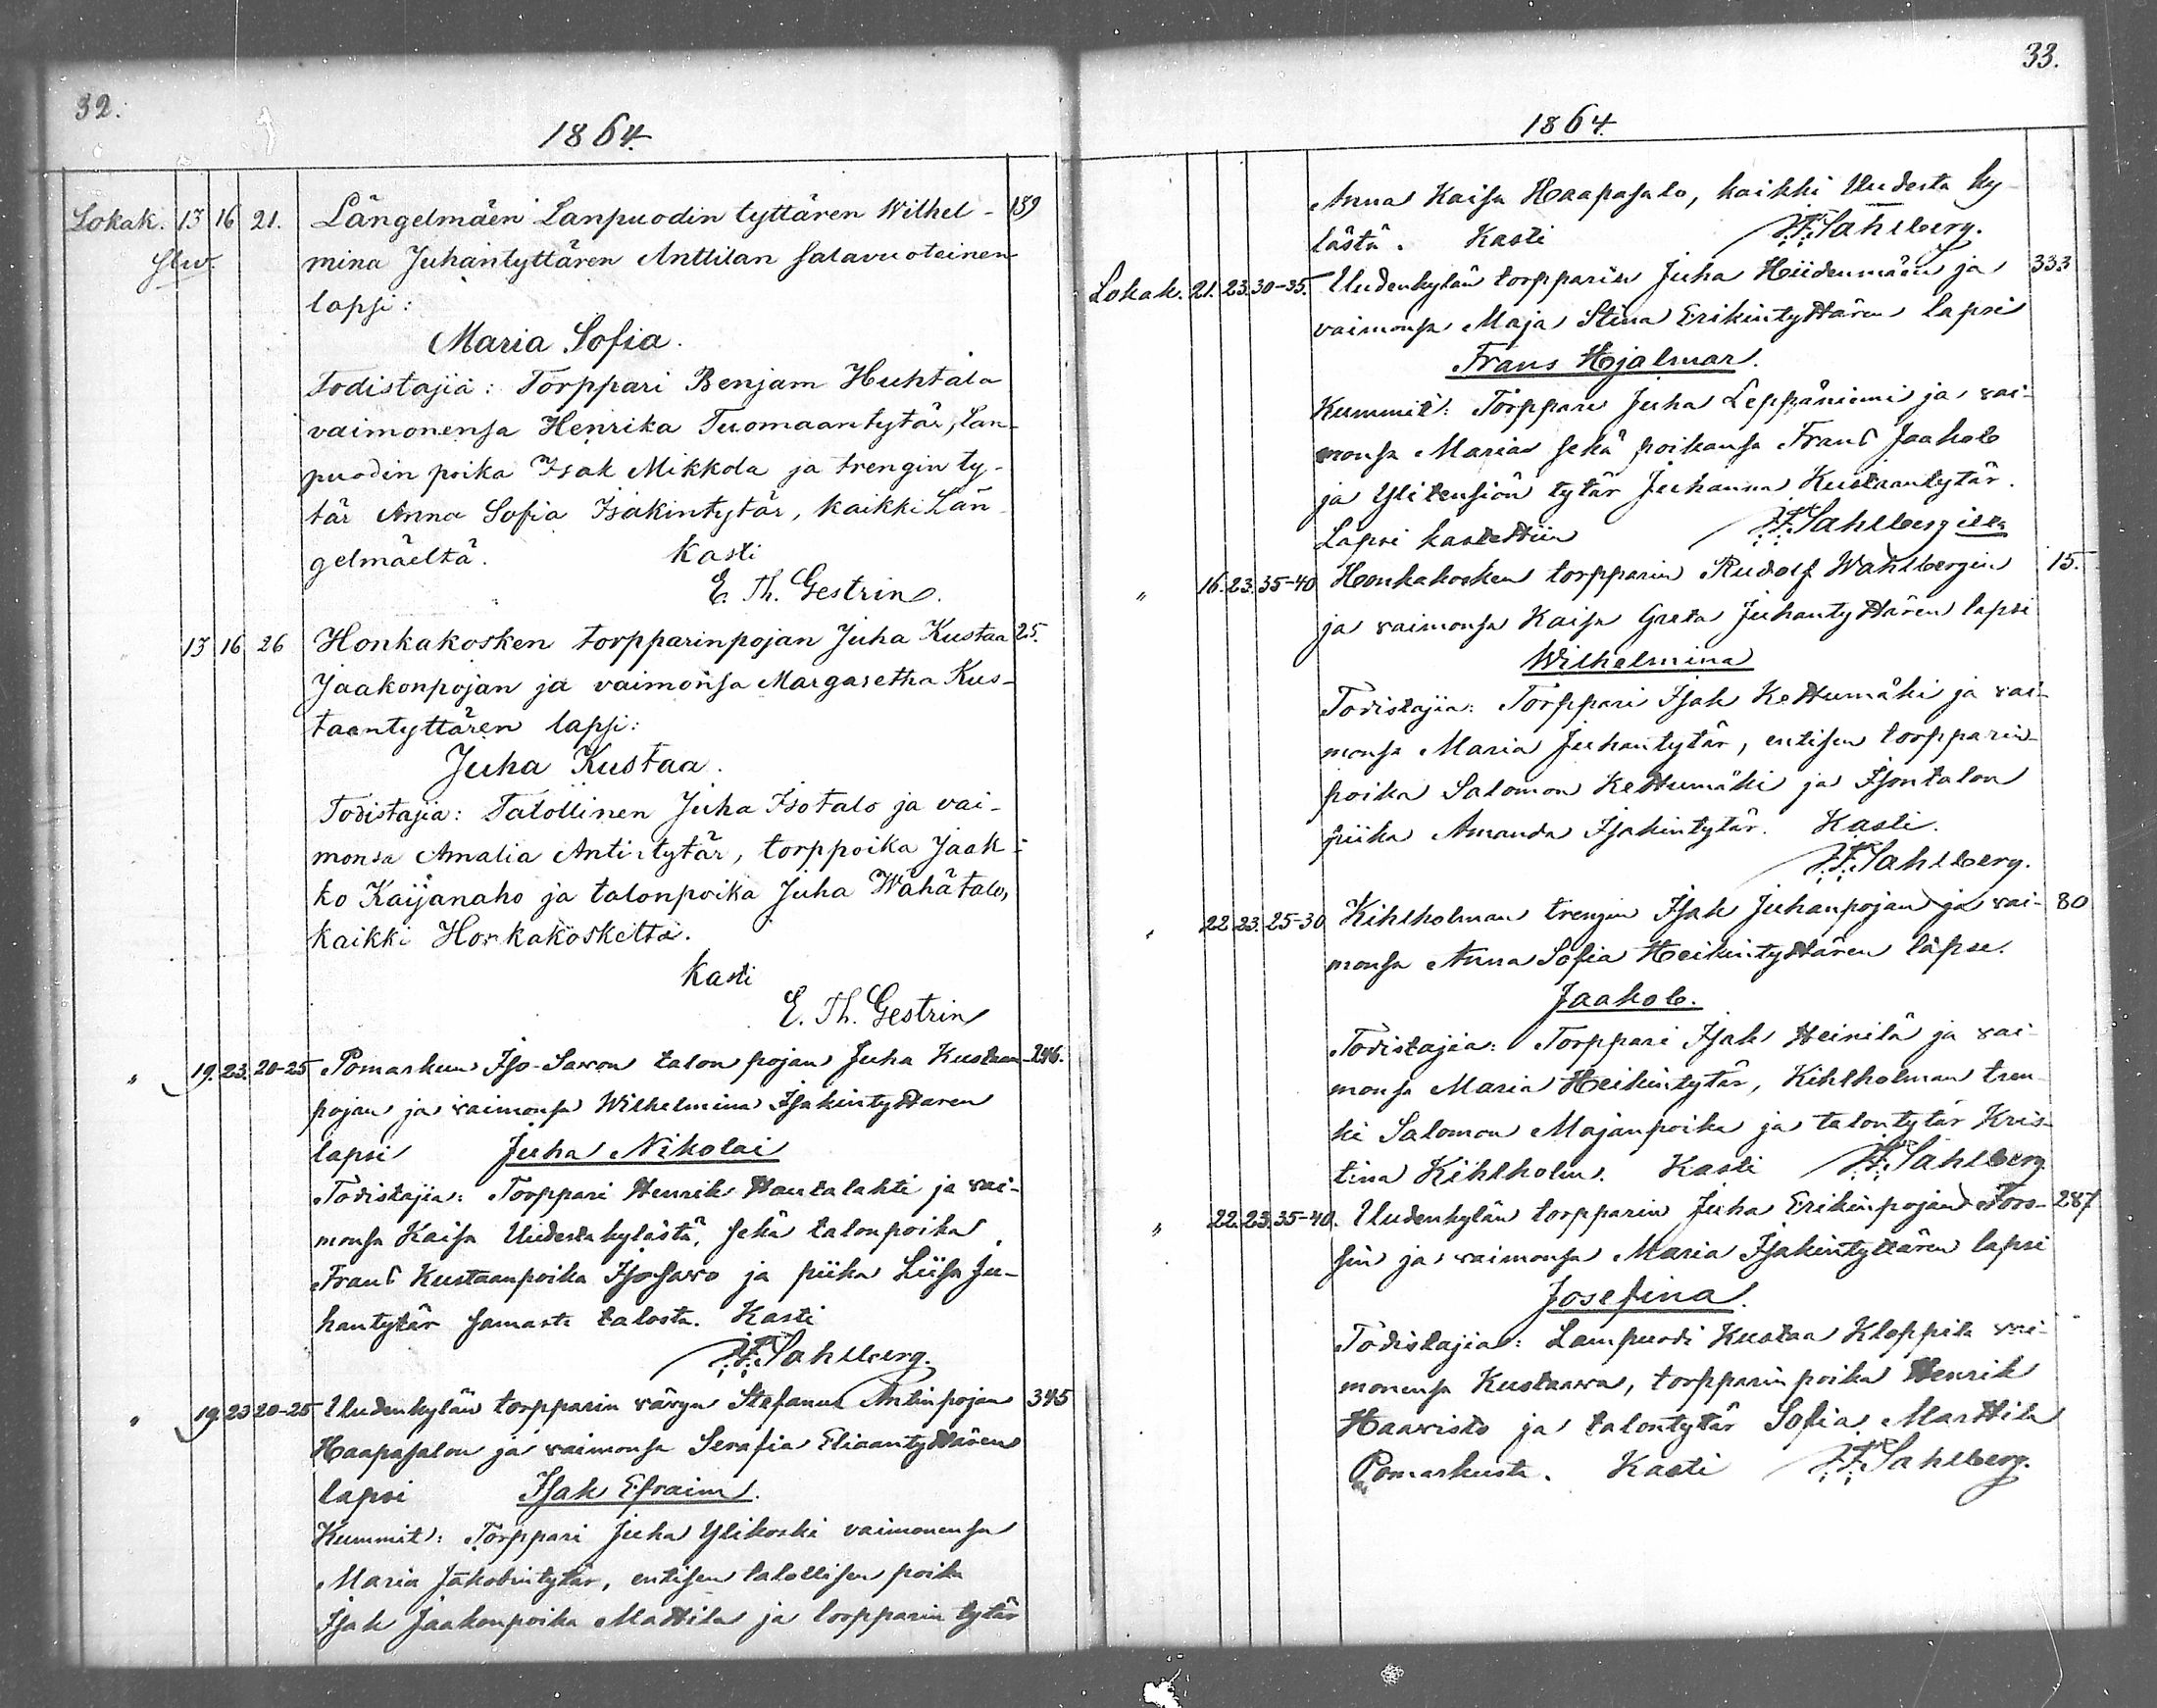 32.
1864.
Lokak. 13 16 21. Längelmäen Lanpuodin tyttären Wilhel- 189
mina Juhantyttären Anttilan salavuoteinen
lapsi:
Maria Sofia.
Todistajia: Torppari Benjam Huhtala
vaimonensa Henrika Tuomaantytär, Lan-
puodin poika Isak Mikkola ja trengin ty-
tär Anna Sofia Isakintytär, kaikki Län
gelmäeltä. Kasti
E. Th. Gestrin.
" 13 16 26 Honkakosken torpparinpojan Juha Kustaa 25.
Jaakonpojan ja vaimonsa Margaretha Kus-
taantyttären lapsi:
Juha Kustaa.
Todistajia: Talollinen Juha Isotalo ja vai-
monsa Amalia Antintytär, torppoika Jaak-
ko Kaijanaho ja talonpoika Juha Wähätalo,
kaikki Honkakoskelta.
Kasti
E. Th. Gestrin
" 19. 23. 20-25 Pomarkun Iso-Sawon talonpojan Juha Kustaan- 246.
pojan ja vaimonsa Wilhelmina Isakintyttaren
lapsi Juha Nikolai
Todistajia: Torppari Henrik Hautalahti ja vai-
monsa Kaisa Uudestakylästä, sekä talonpoika
Frans Kustaanpoika Isosawo ja piika Liisa Ju-
hantytär samasta talosta. Kasti
F. Sahlberg.
" 19. 23 20-25 Uudenkylän torpparin vävyn Stefanus Antinpojan 345
Haapasalon ja vaimonsa Serafia Eliaantyttären
lapsi Isak Efraim.
Kummit: Torppari Juha Ylikoski vaimonensa
Maria Jakobintytär, entisen talollisen poika
Isak Jaakonpoika Mattila ja torpparin tytär
33.
1864.
Anna Kaisa Haapasalo, kaikki Uudesta ky
lästä. Kasti F. Sahlberg.
Lokak. 21. 23. 30-35. Uudenkylän torpparin Juha Hiidenmäen ja 333
vaimonsa Maja Stina Erikintyttären lapsi
Frans Hjalmar.
Kummit: Torppari Juha Leppäniemi ja vai-
monsa Maria sekä poikansa Frans Jaakob
ja Ylitensiön tytär Juhanna Kustaantytär.
Lapsi kastettiin F. Sahlbergilta
" 16. 23. 35-40 Honkakosken torpparin Rudolf Wahlbergin 15.
ja vaimonsa Kaisa Greta Juhantyttären lapsi
Wilhelmina
Todistajia: Torppari Isak Kettumäki ja vai-
monsa Maria Juhantytär, entisen torpparin
poika Salomon Kettumäki ja Isontalon
piika Amanda Isakintytär. Kasti.
F. Sahlberg.
" 22 23. 25-30 Kihlholman trengin Isak Juhanpojan ja vai- 80
monsa Anna Sofia Heikintyttären lapse.
Jaakob.
Todistajia: Torppari Isak Heinilä ja vai-
monsa Maria Heikintytär, Kihlholman tren
ki Salomon Majanpoika ja talontytär Kris-
tina Kihlholm. Kasti F. Sahlberg
" 22. 23. 35-40. Uudenkylän torpparin Juha Erikinpojan Fors- 287
sin ja vaimonsa Maria Isakintyttären lapsi
Josefina.
Todistajia: Lampuodi Kustaa Kloppila vai-
monensa Kustaawa, torpparin poika Henrik
Haavisto ja talontytär Sofia Marttila
Pomarkusta. Kasti F. Sahlberg.